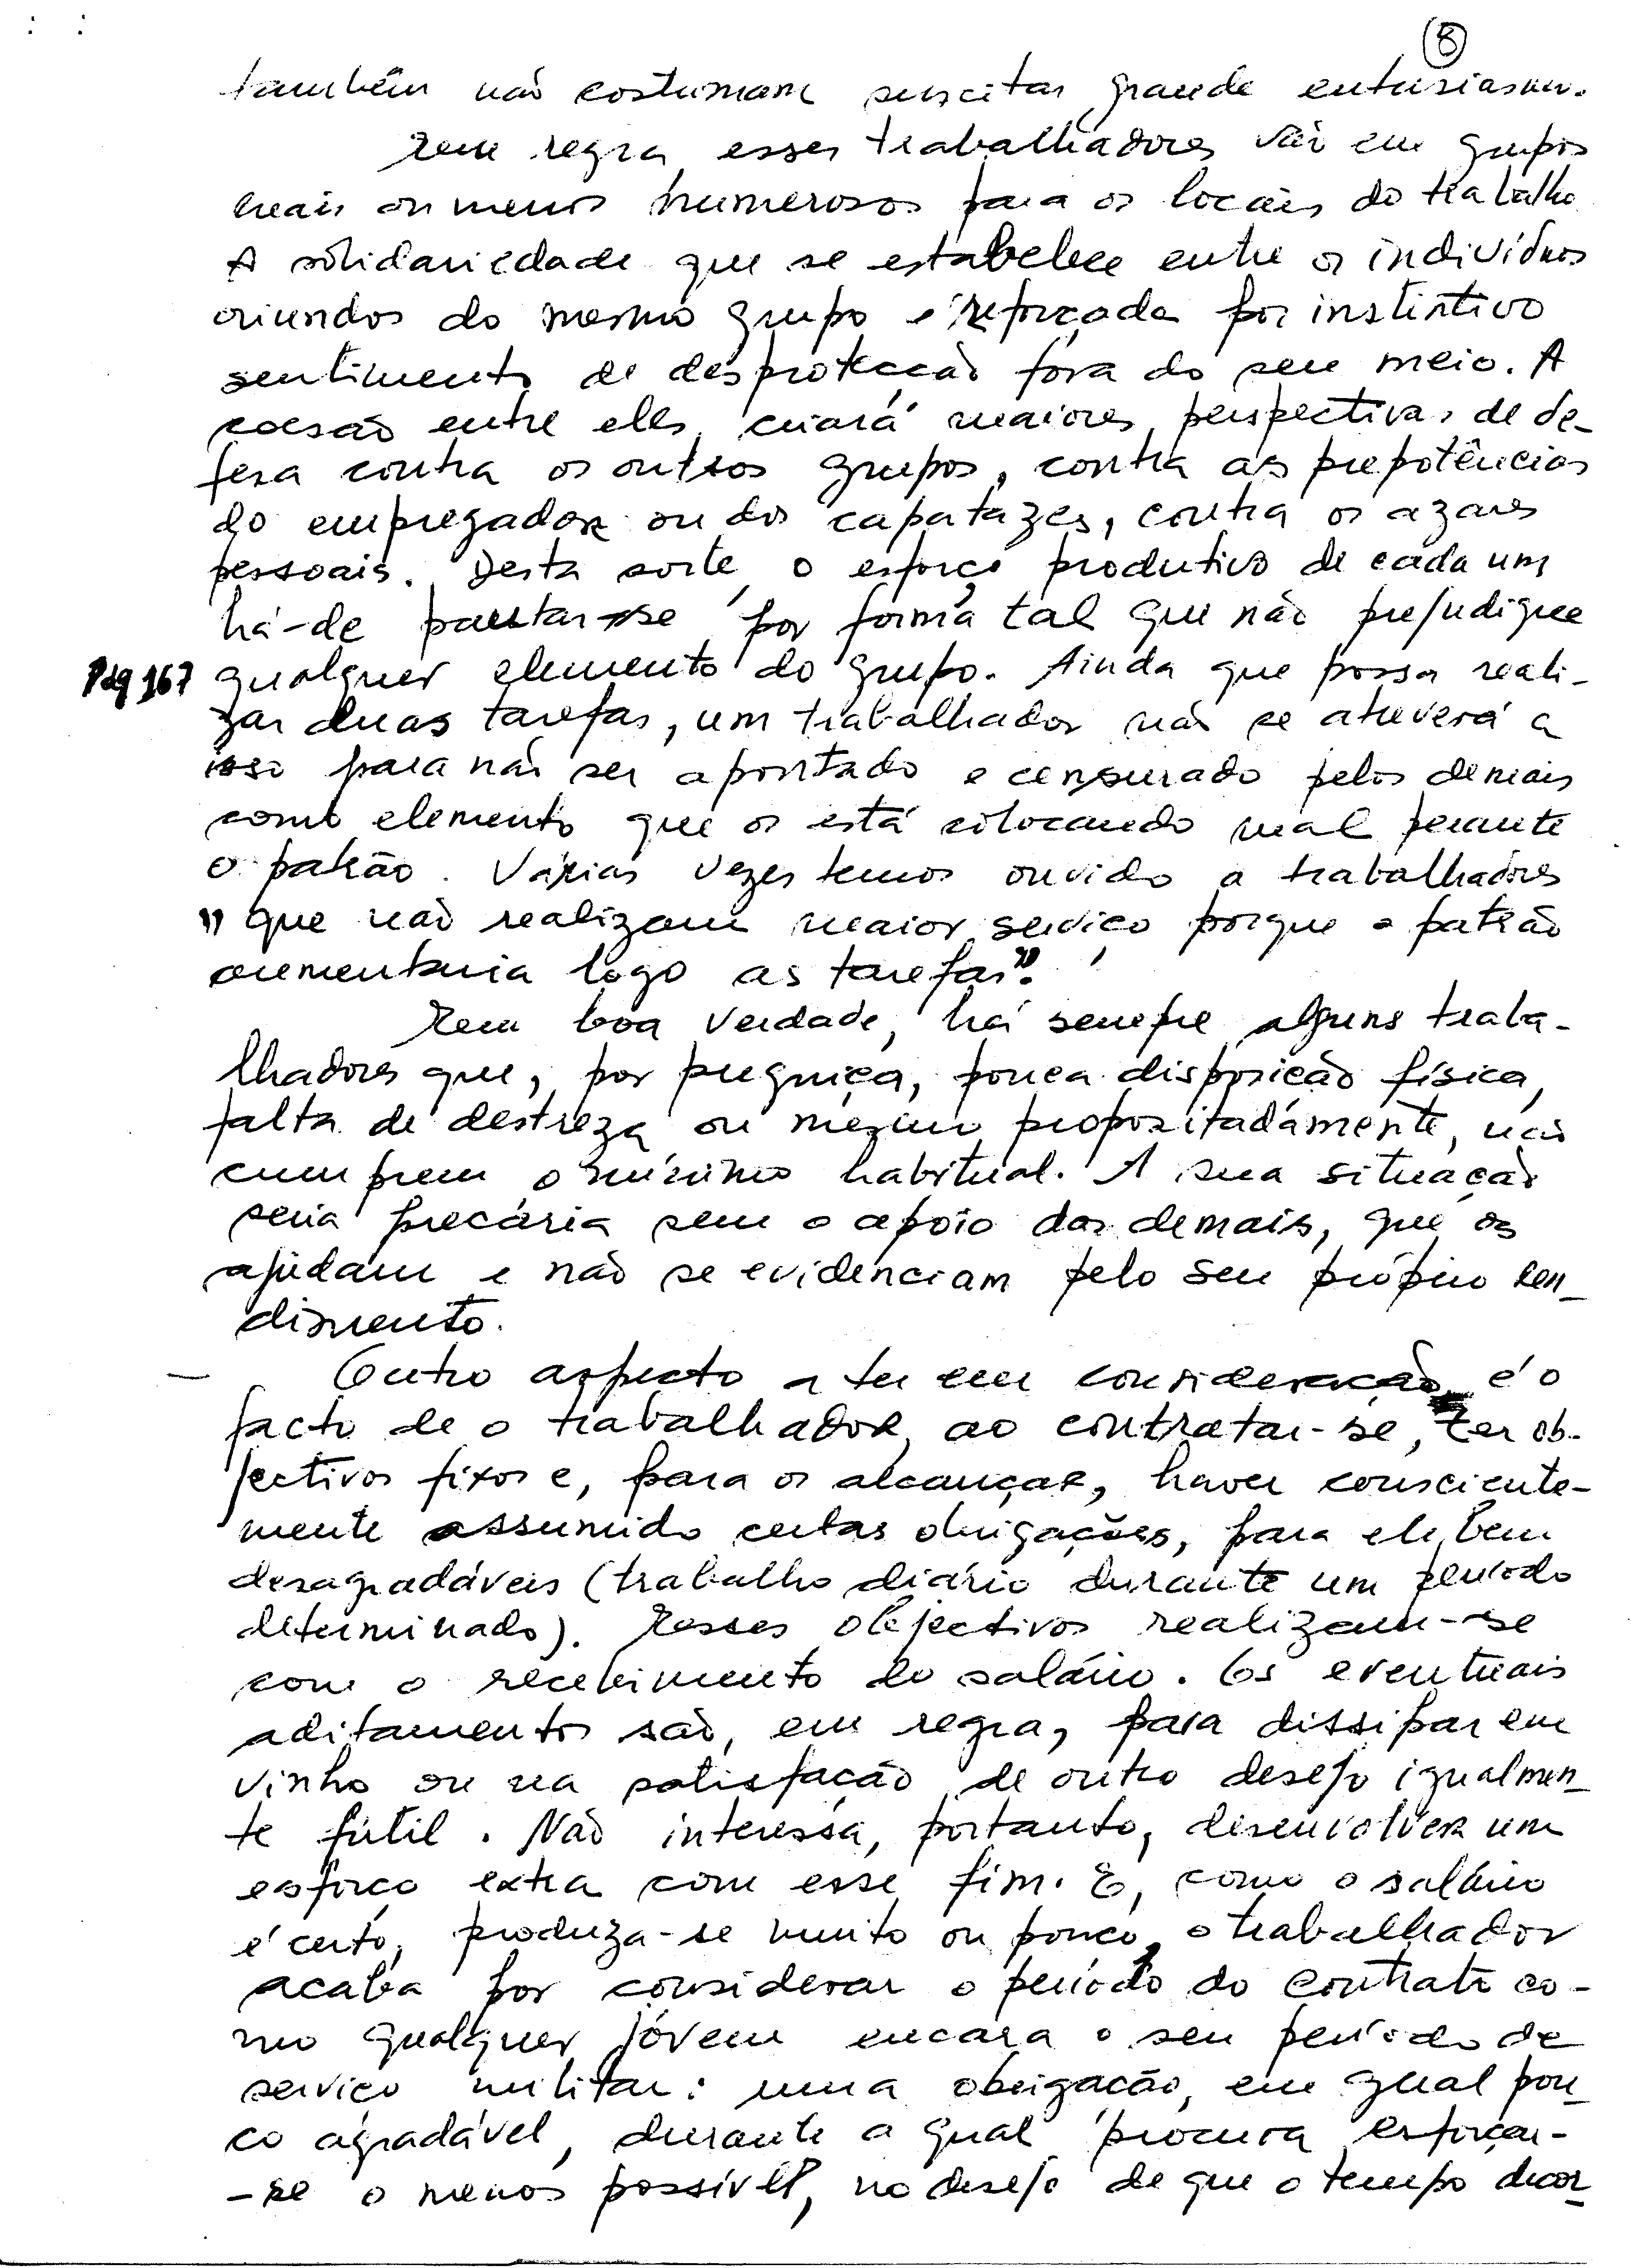 8
também não costumam suscitar grande entusiasmo.
Em regra esses trabalhadores vão em grupos
mais ou menos numerosos para os locais do trabalho
A solidariedade que se estabelece entre os indivíduos
oriundos do mesmo grupo é reforçada por instintivo
sentimento de desprotecção fora do seu meio. A
coesão entre eles criará maiores perspectivas de de-
fesa contra os outros grupos, contra as prepotências
do empregador ou dos capatazes, contra os azares
pessoais. Desta sorte, o esforço produtivo de cada um
há-de pautar-se por forma tal que não prejudique
Pág 167 qualquer elemento do grupo. Ainda que possa reali-
zar duas tarefas, um trabalhador não se atreverá a
isso para não ser apontado e censurado pelos demais
como elemento que os está colocando mal perante
o patrão. Várias vezes temos ouvido a trabalhadores
"que não realizam maior serviço porque o patrão
aumentaria logo as tarefas".
Em boa verdade, há sempre alguns traba-
lhadores que, por preguiça, pouca disposição física,
falta de destreza ou mesmo propositadamente, não
cumprem o mínimo habitual. A sua situação
seria precária sem o apoio dos demais, que os
ajudam e não se evidenciam pelo seu próprio ren-
dimento.
— Outro aspecto a ter em consideração é o
facto de o trabalhador, ao contratar-se, ter ob-
jectivos fixos e, para os alcançar, haver consciente-
mente assumido certas obrigações, para ele bem
desagradáveis (trabalho diário durante um período
determinado). Esses objectivos realizam-se
com o recebimento do salário. Os eventuais
aditamentos são, em regra, para dissipar em
vinho ou na satisfação de outro desejo igualmen-
te fútil. Não interessa, portanto, desenvolver um
esforço extra com esse fim. E, como o salário
é certo, produza-se muito ou pouco, o trabalhador
acaba por considerar o período do contrato co-
mo qualquer jóvem encara o seu período de
serviço militar: uma obrigação, em geral pou-
co agradável, durante a qual procura esforçar-
-se o menos possível, no desejo de que o tempo decor-